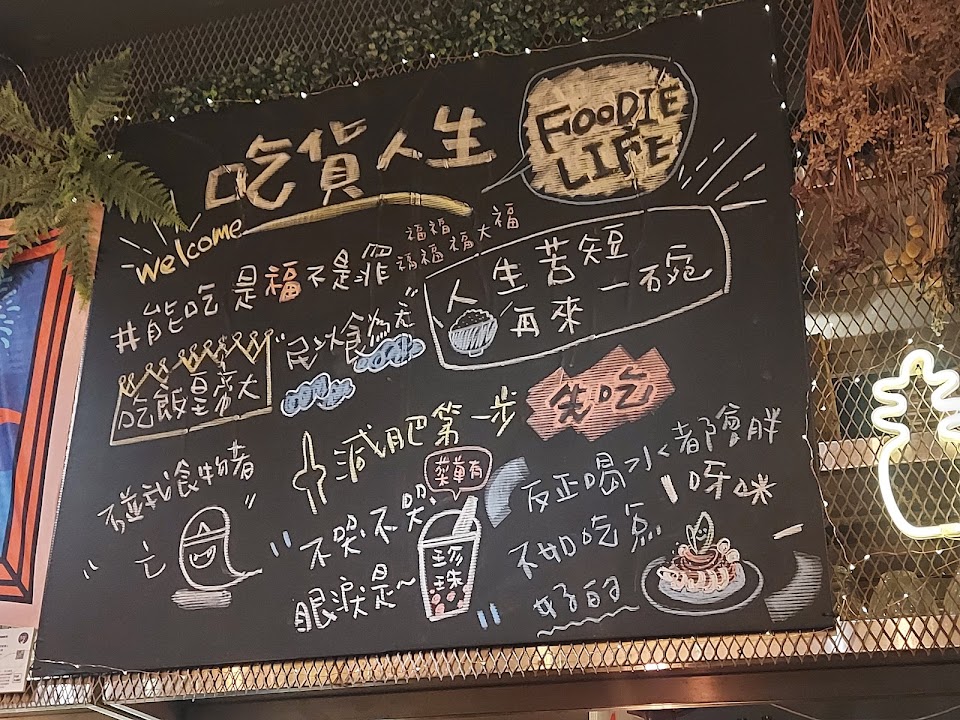 吃貨人生
FOODIE
LIFE
welcome
#能吃是福不是罪
福福
福福福大福
人生苦短
再來一碗
吃飯皇帝大
"民以食為天"
減肥第一步
先吃
不哭不哭
眼淚是~
珍
珠
菜單有
反正喝水都會胖
不如吃点
好的